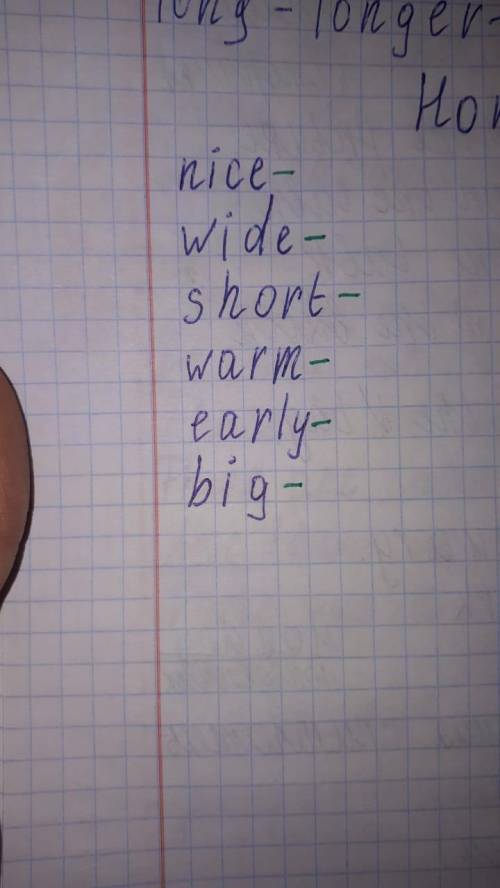 long - longer-
nice-
wide-
short-
warm-
early-
big-